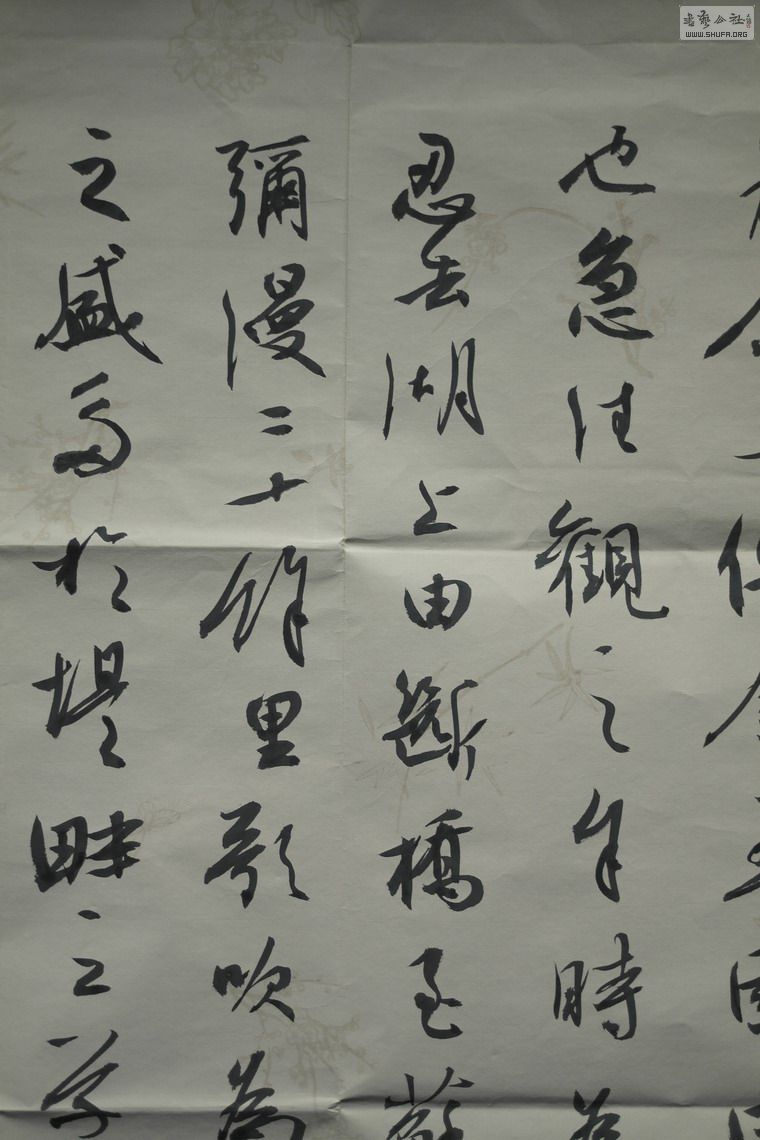 書藝公社
WWW.SHUFA.ORG
也急往觀之余時為
忍去湖上由斷橋至蘇
彌漫二十餘里歌吹為
之盛多於堤畔之草